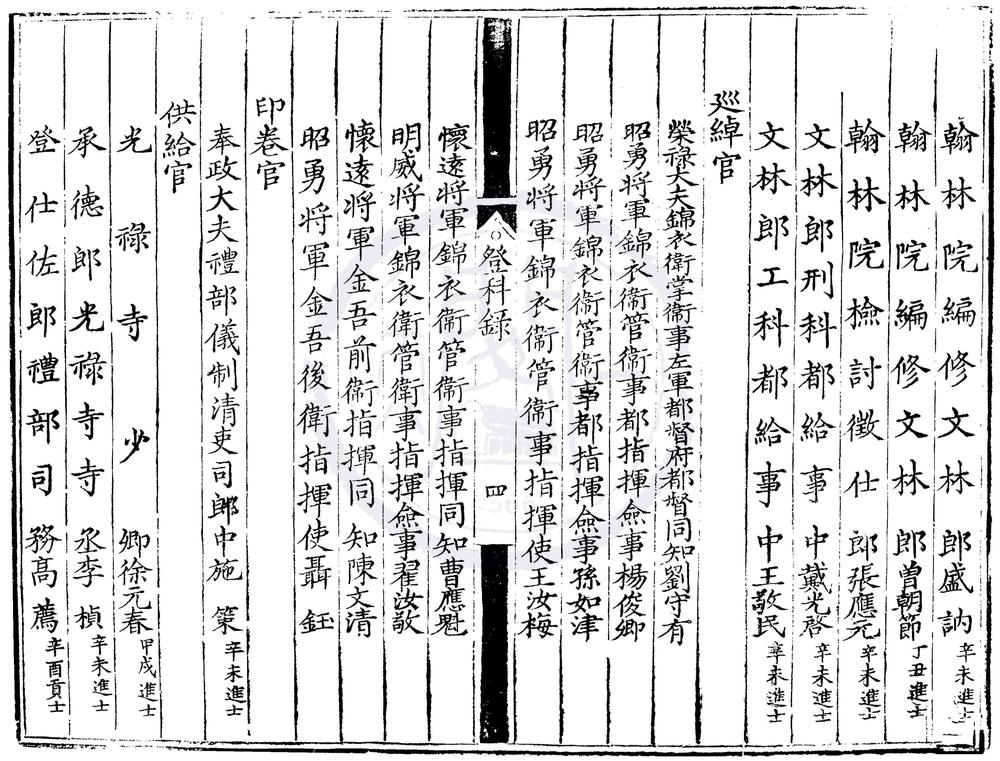 翰林院編修文林郎盛訥辛未進士
翰林院編修文林郎曾朝節丁丑進士
翰林院檢討徵仕郎張應元辛未進士
文林郎刑科都給事中戴光啓辛未進士
文林郎工科都給事中王敬民辛未進士
廵綽官
榮祿大夫錦衣衛掌衛事左軍都督府都督同知劉守有
昭勇將軍錦衣衛管衛事都指揮僉事楊俊卿
昭勇將軍錦衣衛管衛事都指揮僉事孫如津
昭勇將軍錦衣衛管衛事指揮使王汝梅
登科録
四
懷遠將軍錦衣衛管衛事指揮同知曹應魁
明威將軍錦衣衛管衛事指揮僉事翟汝敬
懷遠將軍金吾前衛指揮同知陳文清
昭勇將軍金吾後衛指揮使聶鈺
印卷官
奉政大夫禮部儀制清吏司郎中施策辛未進士
供給官
光祿寺少卿徐元春甲戌進士
承德郎光祿寺寺丞李楨辛未進士
登仕佐郎禮部司務高薦辛酉貢士